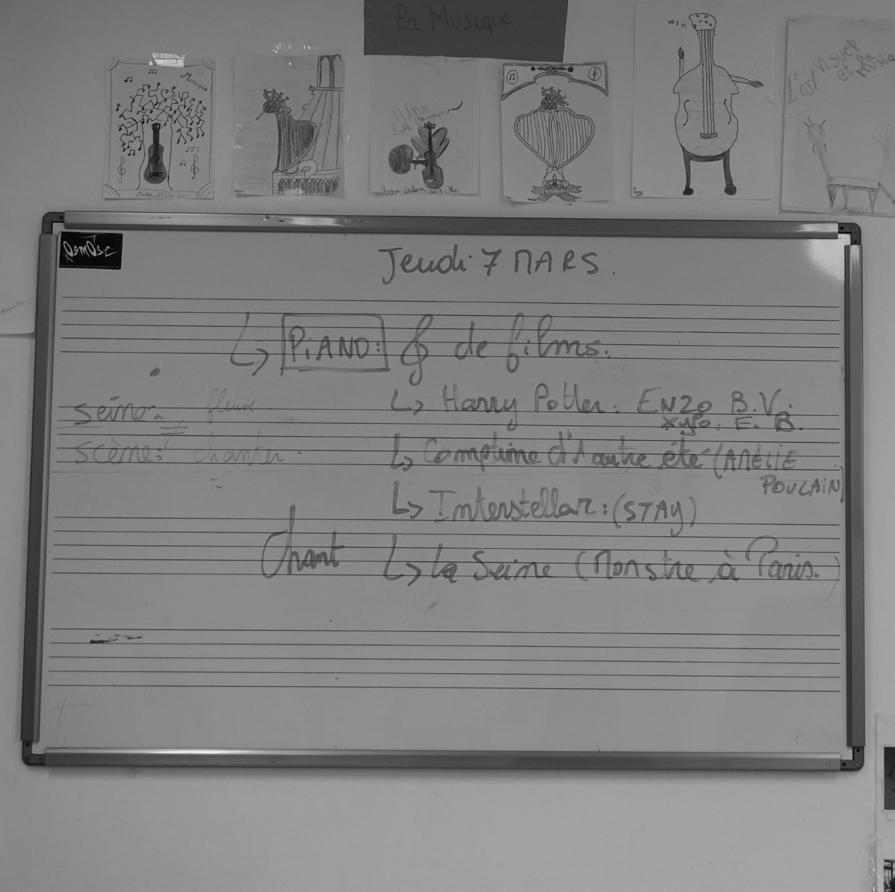 La Musique
Musique
L'art visuel et la musique
OsmOse
Jeudi 7 MARS.
↳ PIANO: 𝄞 de films.
↳ Harry Potter: ENZO B.V.
xylo: E. B.
seine: fleuve.
↳ Comptine d'1 autre été (AMÉLIE
POULAIN)
scène: chanter.
↳ Interstellar: (STAY)
Chant ↳ La Seine (Monstre à Paris.)